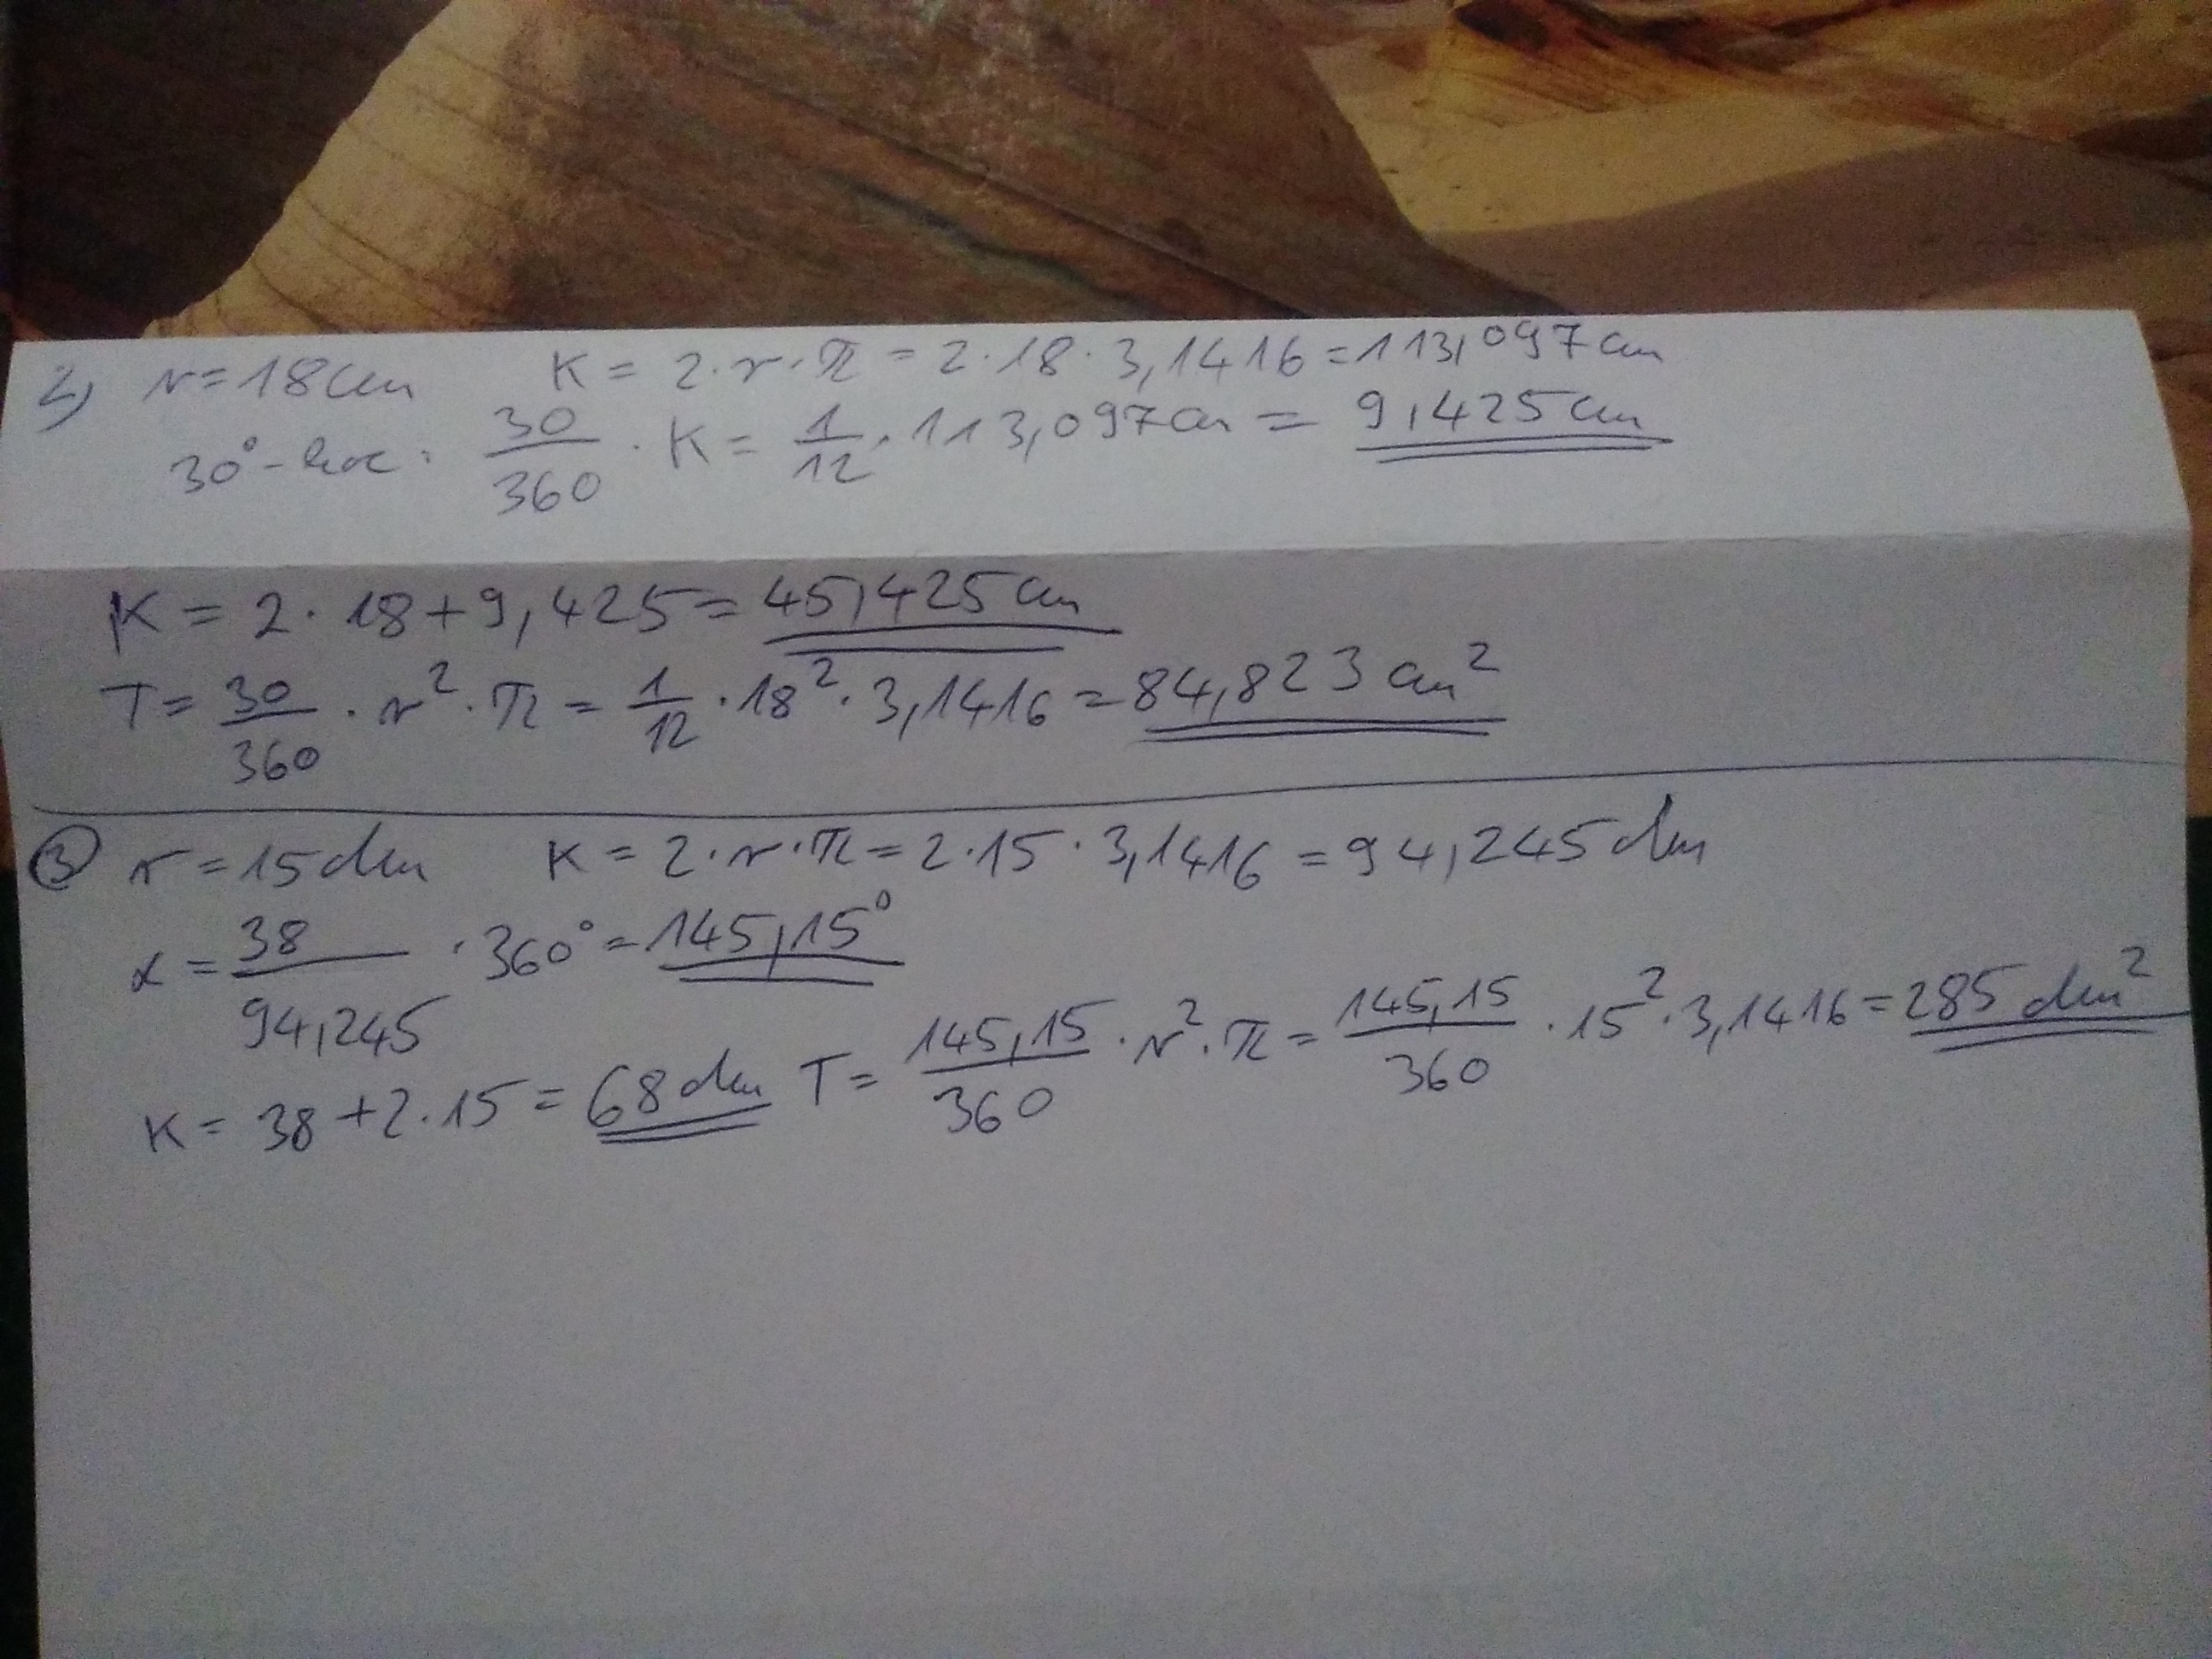 2) r = 18 cm K = 2·r·π = 2·18·3,1416 = 113,097 cm
30°-hoz: 30/360 · K = 1/12 · 113,097 cm = 9,425 cm
K = 2·18 + 9,425 = 45,425 cm
T = 30/360 · r²·π = 1/12 · 18²·3,1416 = 84,823 cm²
3 r = 15 dm K = 2·r·π = 2·15·3,1416 = 94,245 dm
α = 38/94,245 · 360° = 145,15°
K = 38 + 2·15 = 68 dm T = 145,15/360 · r²·π = 145,15/360 · 15²·3,1416 = 285 dm²